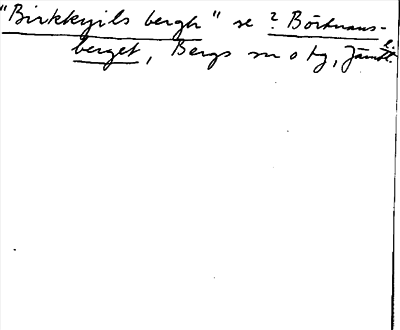 "Birkkyils bergh" se ? Börtnans-
berget, Bergs sn o tg, Jämtl. l.